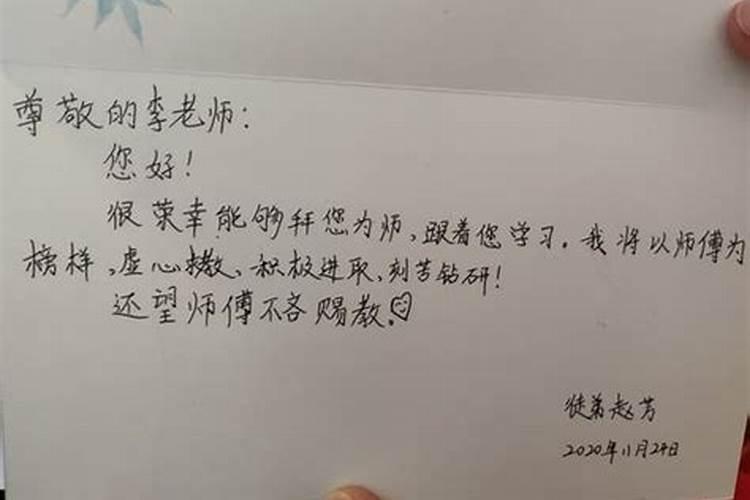 尊敬的李老师:
您好!
很荣幸能够拜您为师,跟着您学习。我将以师傅为
榜样、虚心求教、积极进取、刻苦钻研!
还望师傅不吝赐教。
徒弟赵芳
2020年11月24日